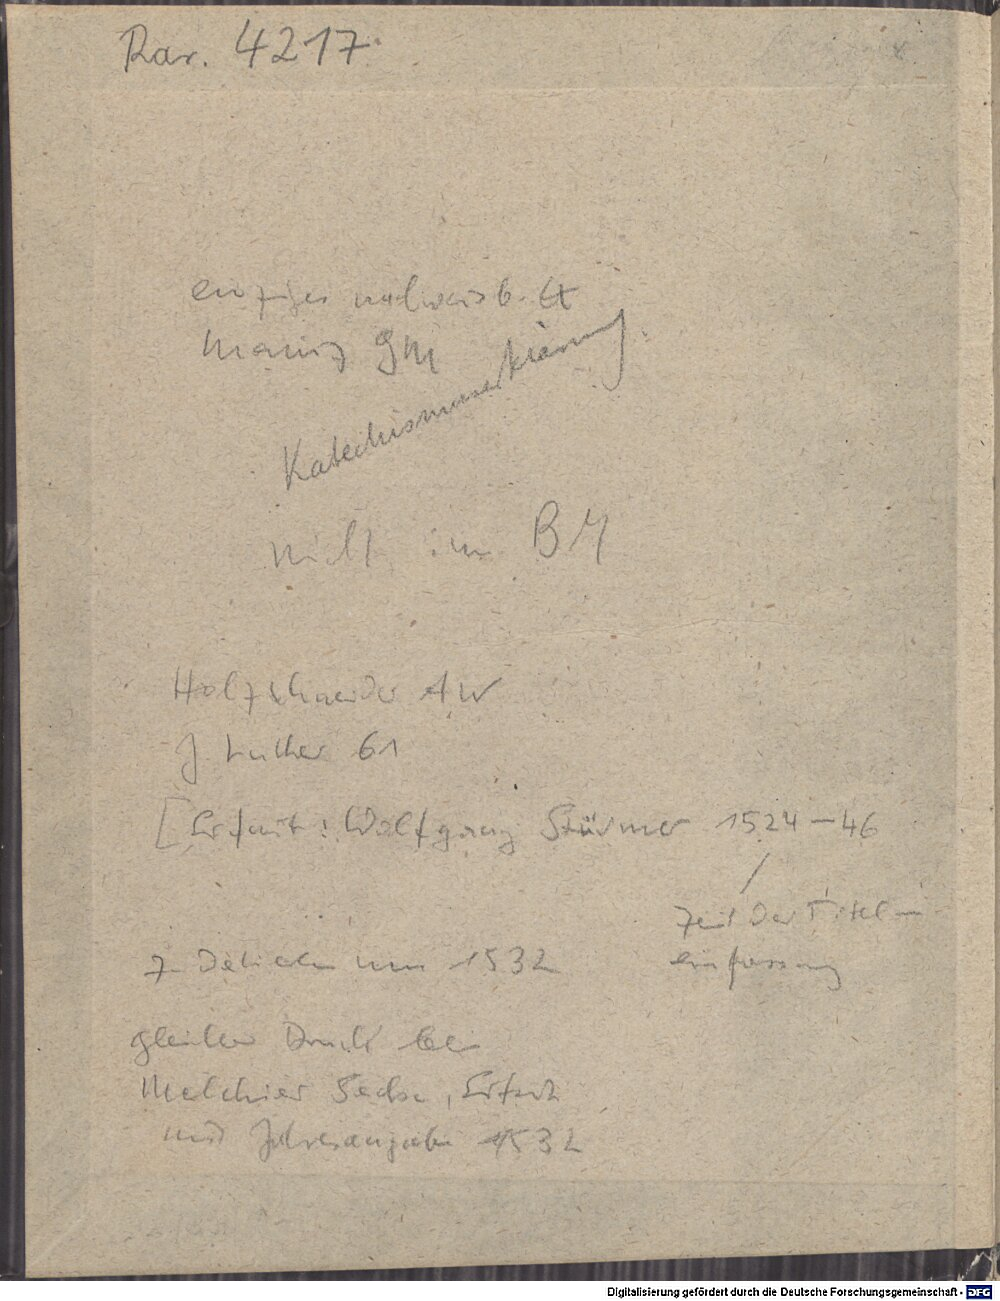 Rar. 4217
einziges nachweisb. Ex
Mainz GM
Katechismuserklärung
nicht im BM
Holzschneider AW
J Luther 61
[Erfurt: Wolfgang Stürmer 1524–46
Zeit der Titel-
einfassung
z. Datieren um 1532
gleicher Druck bei
Melchior Sachse, Erfurt
mit Jahresangabe 1532
Digitalisierung gefördert durch die Deutsche Forschungsgemeinschaft - DFG